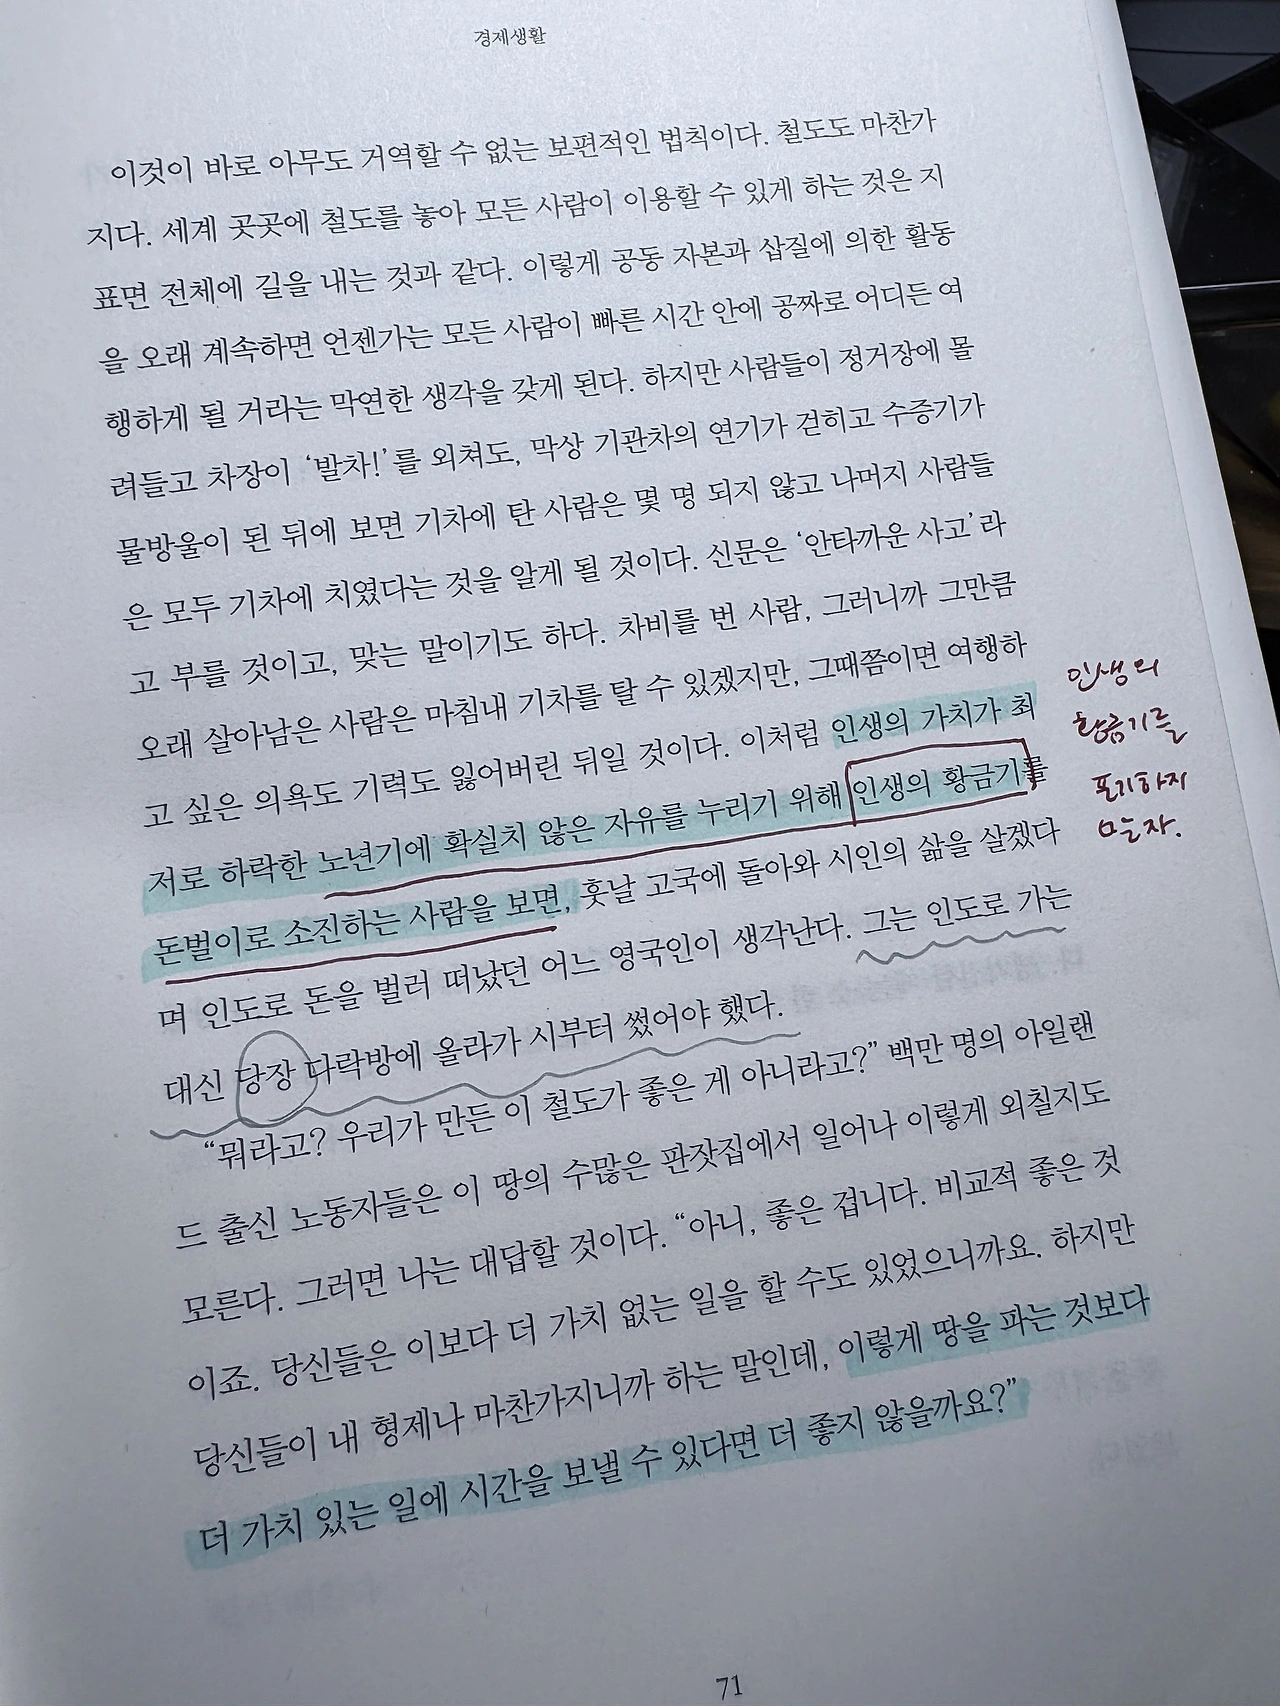 경제생활
이것이 바로 아무도 거역할 수 없는 보편적인 법칙이다. 철도도 마찬가
지다. 세계 곳곳에 철도를 놓아 모든 사람이 이용할 수 있게 하는 것은 지
표면 전체에 길을 내는 것과 같다. 이렇게 공동 자본과 삽질에 의한 활동
을 오래 계속하면 언젠가는 모든 사람이 빠른 시간 안에 공짜로 어디든 여
행하게 될 거라는 막연한 생각을 갖게 된다. 하지만 사람들이 정거장에 몰
려들고 차장이 ‘발차!’를 외쳐도, 막상 기관차의 연기가 걷히고 수증기가
물방울이 된 뒤에 보면 기차에 탄 사람은 몇 명 되지 않고 나머지 사람들
은 모두 기차에 치였다는 것을 알게 될 것이다. 신문은 ‘안타까운 사고’라
고 부를 것이고, 맞는 말이기도 하다. 차비를 번 사람, 그러니까 그만큼
오래 살아남은 사람은 마침내 기차를 탈 수 있겠지만, 그때쯤이면 여행하
고 싶은 의욕도 기력도 잃어버린 뒤일 것이다. 이처럼 인생의 가치가 최
저로 하락한 노년기에 확실치 않은 자유를 누리기 위해 인생의 황금기를
돈벌이로 소진하는 사람을 보면, 훗날 고국에 돌아와 시인의 삶을 살겠다
며 인도로 돈을 벌러 떠났던 어느 영국인이 생각난다. 그는 인도로 가는
대신 당장 다락방에 올라가 시부터 썼어야 했다.
“뭐라고? 우리가 만든 이 철도가 좋은 게 아니라고?” 백만 명의 아일랜
드 출신 노동자들은 이 땅의 수많은 판잣집에서 일어나 이렇게 외칠지도
모른다. 그러면 나는 대답할 것이다. “아니, 좋은 겁니다. 비교적 좋은 것
이죠. 당신들은 이보다 더 가치 없는 일을 할 수도 있었으니까요. 하지만
당신들이 내 형제나 마찬가지니까 하는 말인데, 이렇게 땅을 파는 것보다
더 가치 있는 일에 시간을 보낼 수 있다면 더 좋지 않을까요?”
인생의
황금기를
포기하지
말자.
71